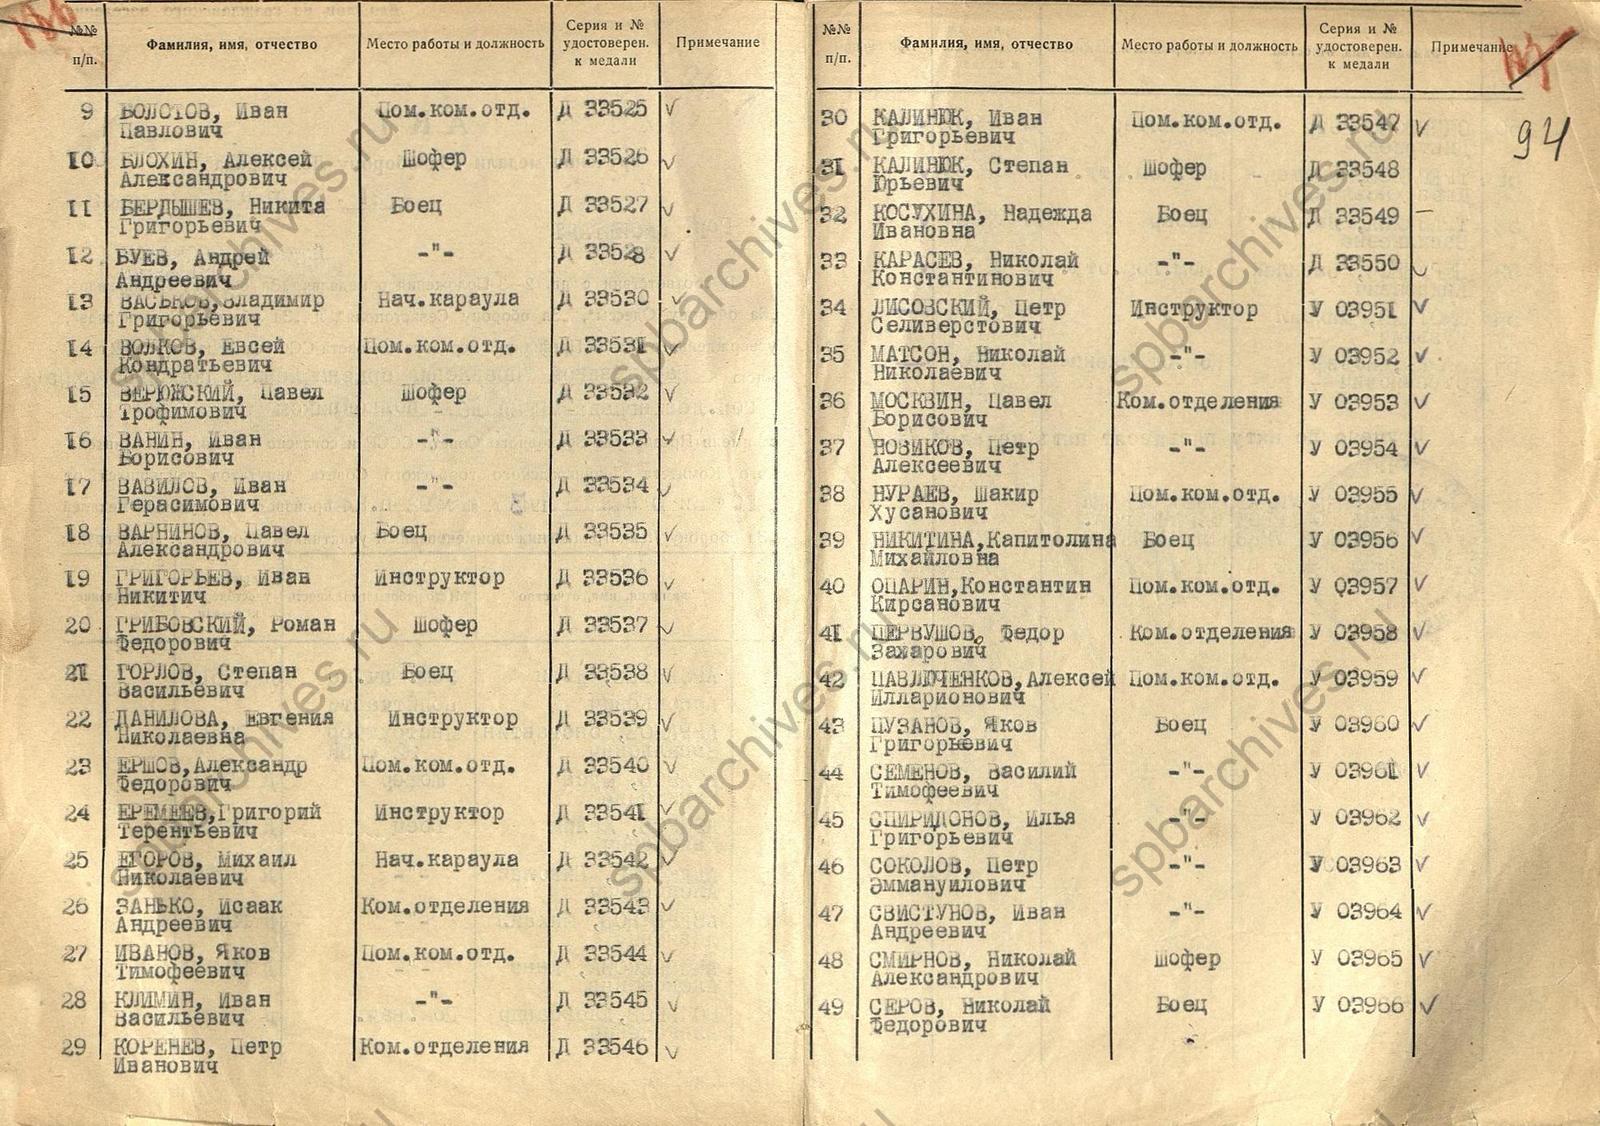 №№ п/п. Фамилия, имя, отчество Место работы и должность Серия и № удостоверен. к медали Примечание
9 БОЛОТОВ, Иван Пом.ком.отд. Д 33525 ✓
Павлович
10 БЛОХИН, Алексей Шофер Д 33526 ✓
Александрович
11 БЕРДЫШЕВ, Никита Боец Д 33527 ✓
Григорьевич
12 БУЕВ, Андрей -"- Д 33528 ✓
Андреевич
13 ВАСЬКОВ,Владимир Нач.караула Д 33530 ✓
Григорьевич
14 ВОЛКОВ, Евсей Пом.ком.отд. Д 33531 ✓
Кондратьевич
15 ВЕРЮЖСКИЙ, Павел Шофер Д 33532 ✓
Трофимович
16 ВАНИН, Иван -"- Д 33533 ✓
Борисович
17 ВАВИЛОВ, Иван -"- Д 33534 ✓
Герасимович
18 ВАРНИНОВ, Павел Боец Д 33535 ✓
Александрович
19 ГРИГОРЬЕВ, Иван Инструктор Д 33536 ✓
Никитич
20 ГРИБОВСКИЙ, Роман Шофер Д 33537 ✓
Федорович
21 ГОРЛОВ, Степан Боец Д 33538 ✓
Васильевич
22 ДАНИЛОВА, Евгения Инструктор Д 33539 ✓
Николаевна
23 ЕРШОВ,Александр Пом.ком.отд. Д 33540 ✓
Федорович
24 ЕРЕМЕЕВ,Григорий Инструктор Д 33541 ✓
Терентьевич
25 ЕГОРОВ, Михаил Нач.караула Д 33542 ✓
Николаевич
26 ЗАНЬКО, Исаак Ком.отделения Д 33543 ✓
Андреевич
27 ИВАНОВ, Яков Пом.ком.отд. Д 33544 ✓
Тимофеевич
28 КЛИМИН, Иван -"- Д 33545 ✓
Васильевич
29 КОРЕНЕВ, Петр Ком.отделения Д 33546 ✓
Иванович
№№ п/п. Фамилия, имя, отчество Место работы и должность Серия и № удостоверен. к медали Примечание
94
30 КАЛИНЮК, Иван Пом.ком.отд. Д 33547 ✓
Григорьевич
31 КАЛИНЮК, Степан Шофер Д 33548
Юрьевич
32 КОСУХИНА, Надежда Боец Д 33549 —
Ивановна
33 КАРАСЕВ, Николай -"- Д 33550 ✓
Константинович
34 ЛИСОВСКИЙ, Петр Инструктор У 03951 ✓
Селиверстович
35 МАТСОН, Николай -"- У 03952 ✓
Николаевич
36 МОСКВИН, Павел Ком.отделения У 03953 ✓
Борисович
37 НОВИКОВ, Петр -"- У 03954 ✓
Алексеевич
38 НУРАЕВ, Шакир Пом.ком.отд. У 03955 ✓
Хусанович
39 НИКИТИНА,Капитолина Боец У 03956 ✓
Михайловна
40 ОПАРИН,Константин Пом.ком.отд. У 03957 ✓
Кирсанович
41 ПЕРВУШОВ, Федор Ком.отделения У 03958 ✓
Захарович
42 ПАВЛЮЧЕНКОВ,Алексей Пом.ком.отд. У 03959 ✓
Илларионович
43 ПУЗАНОВ, Яков Боец У 03960 ✓
Григорьевич
44 СЕМЕНОВ, Василий -"- У 03961 ✓
Тимофеевич
45 СПИРИДОНОВ, Илья -"- У 03962 ✓
Григорьевич
46 СОКОЛОВ, Петр -"- У 03963 ✓
Эммануилович
47 СВИСТУНОВ, Иван -"- У 03964 ✓
Андреевич
48 СМИРНОВ, Николай Шофер У 03965 ✓
Александрович
49 СЕРОВ, Николай Боец У 03966 ✓
Федорович
spbarchives.ru
spbarchives.ru
spbarchives.ru
spbarchives.ru
spbarchives.ru
spbarchives.ru